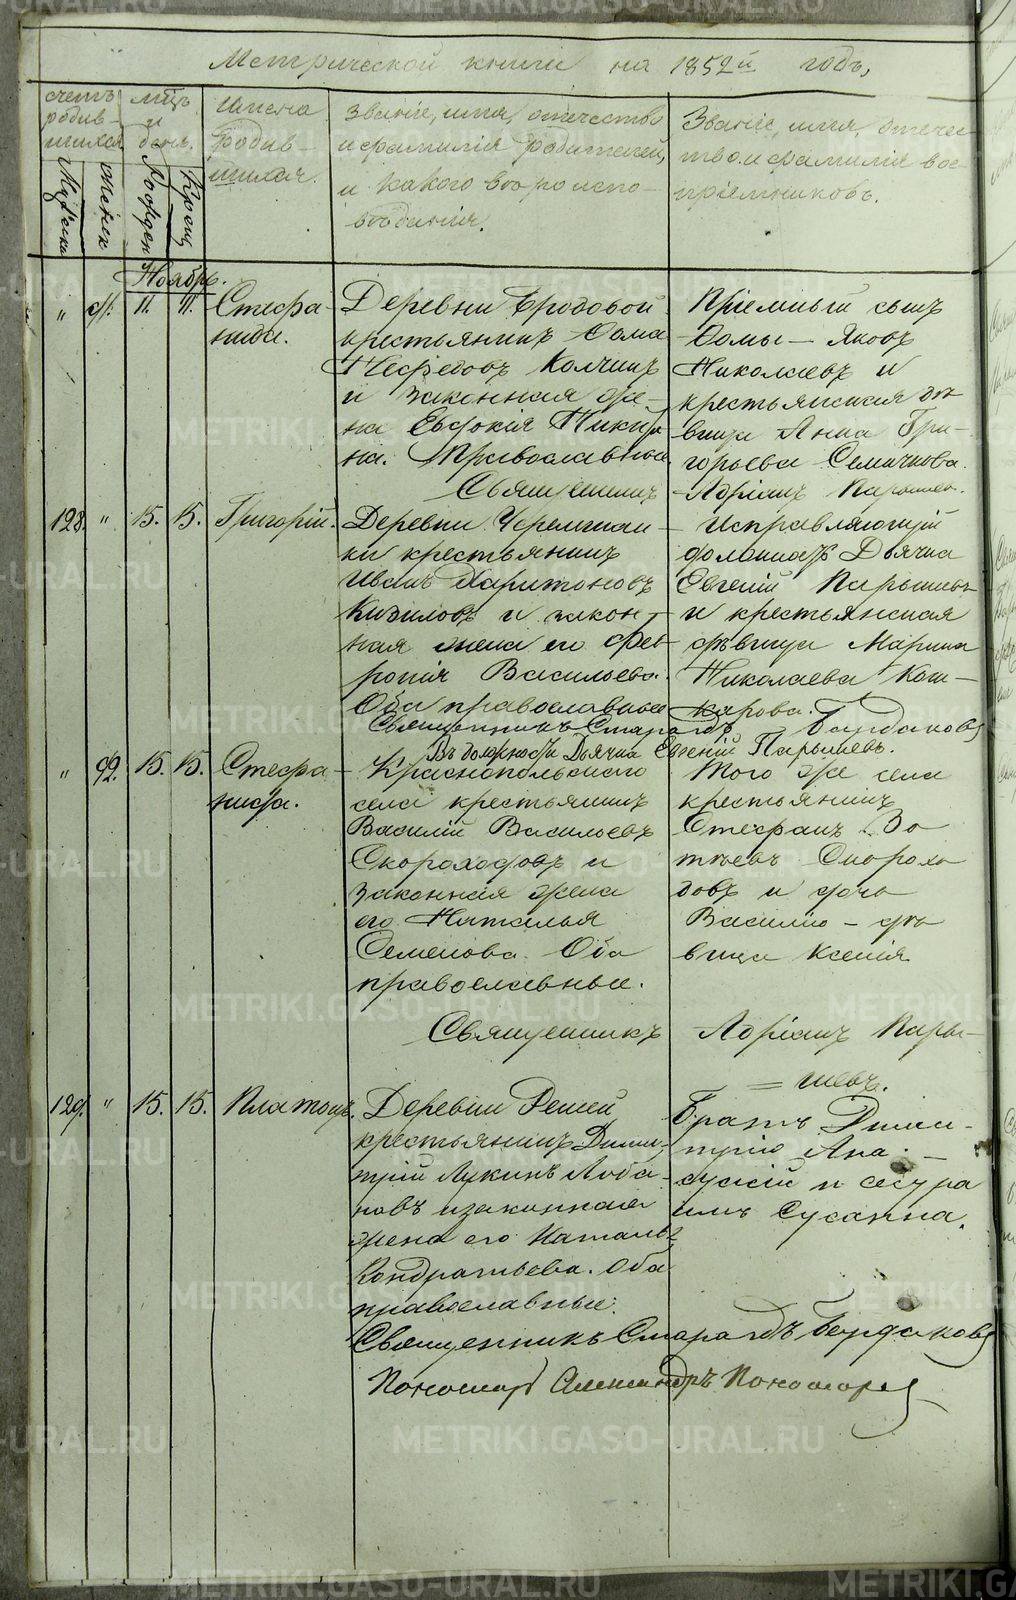 Метрической книги на 1852й годъ,
счетъ родив-шихся
мцъ и день.
Имена родив-шихся.
Званіе, имя, отечество и фамилія родителей, и какого вѣроиспо-вѣданія.
Званіе, имя, отечес-тво и фамилія вос-пріемниковъ.
Мужеска
Женск
Рожден
Крещ
Ноябрь.
" 11. 11. Стефа-
нида.
Деревни Бродовой
крестьянинъ Ѳома
Нефедовъ Колчинъ
и законная же-
на Евдокія Ники
на. Православные
Священникъ
Пріемный сынъ
Ѳомы — Яковъ
Николаевъ и
крестьянская дѣ
вица Анна Гри-
горьева Семячкова.
Адріанъ Парышев.
128. " 15. 15. Григорій.
Деревни Черемшан-
ки крестьянинъ
Иванъ Харитоновъ
Кизиловъ и закон-
ная жена его Фев-
ронія Васильева.
Оба православные
Исправляющій
должность Дьячка
Евгеній Парышевъ
и крестьянская
дѣвица Марина
Николаева Каш-
карова.
Священникъ Смарагдъ Бирдаковъ
Въ должности Дьячка Евгеній Парышевъ.
" 92. 15. 15. Стефа-
нида.
Краснопольскаго
села крестьянинъ
Василій Васильевъ
Скороходовъ и
законная жена
его Наталья
Семенова. Оба
православные.
Того же села
крестьянинъ
Стефанъ Фо
тѣевъ Скорохо
довъ и дочь
Василію — дѣ
вица Ксенія
Священникъ Адріанъ Пары-
= шевъ.
129. " 15. 15. Платонъ.
Деревни Решей
крестьянинъ Дими-
трій Лукинъ Лоба-
новъ и законная
жена его Наталья
Кондратьева. Оба
православные.
Братъ Дими-
трію Ана-
сужій и сестра
имъ Сусанна.
Священникъ Смарагдъ Бирдаковъ
Пономарь Александръ Пономарев
METRIKI.GASO-URAL.RU